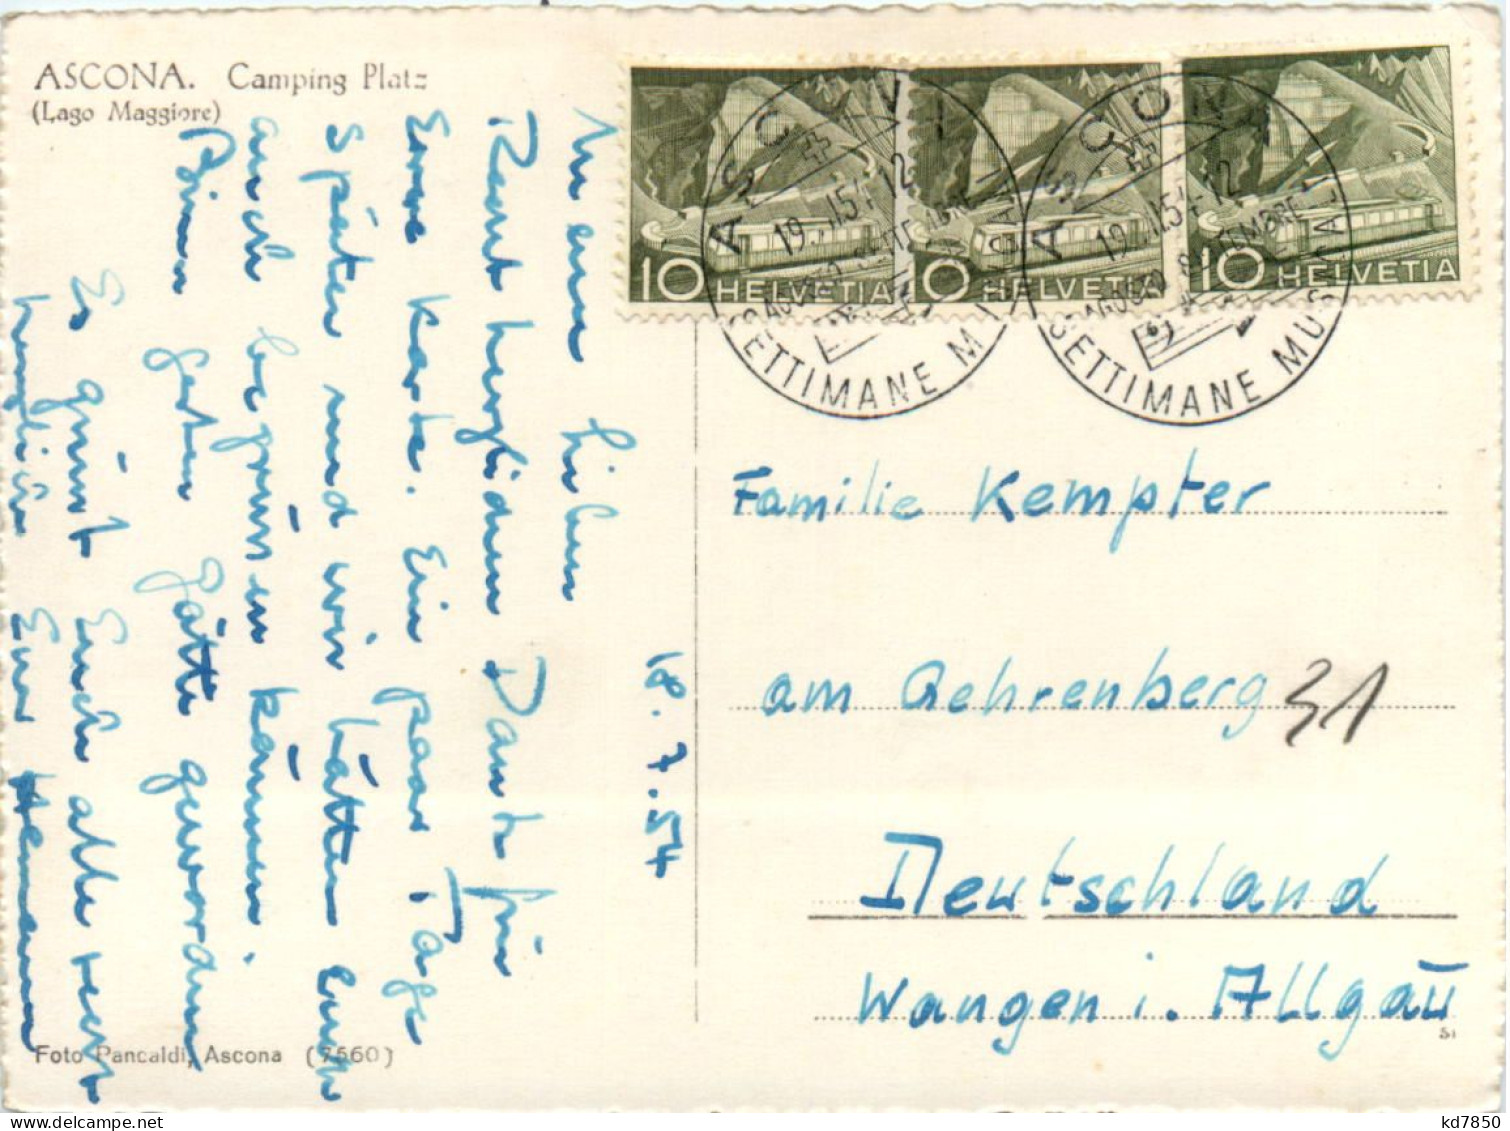 ASCONA. Camping Platz
(Lago Maggiore)
10 HELVETIA
10 HELVETIA
10 HELVETIA
ASCONA
19. 54-12
SETTIMANE MUSICALI
ASCONA
19. 54-12
SETTIMANE MUSICALI
18.7.54
Lieben
Recht herzlichen Dank für
Eure Karte. Ein paar Tage
später und wir hätten Euch
auch begrüßen können.
gute geworden
Es grüßt Euch alle recht
herzlich Eure
Familie Kempter
am Gehrenberg 31
Deutschland
Wangen i. Allgäu
Foto Pancaldi, Ascona (7560)
51
kd7850